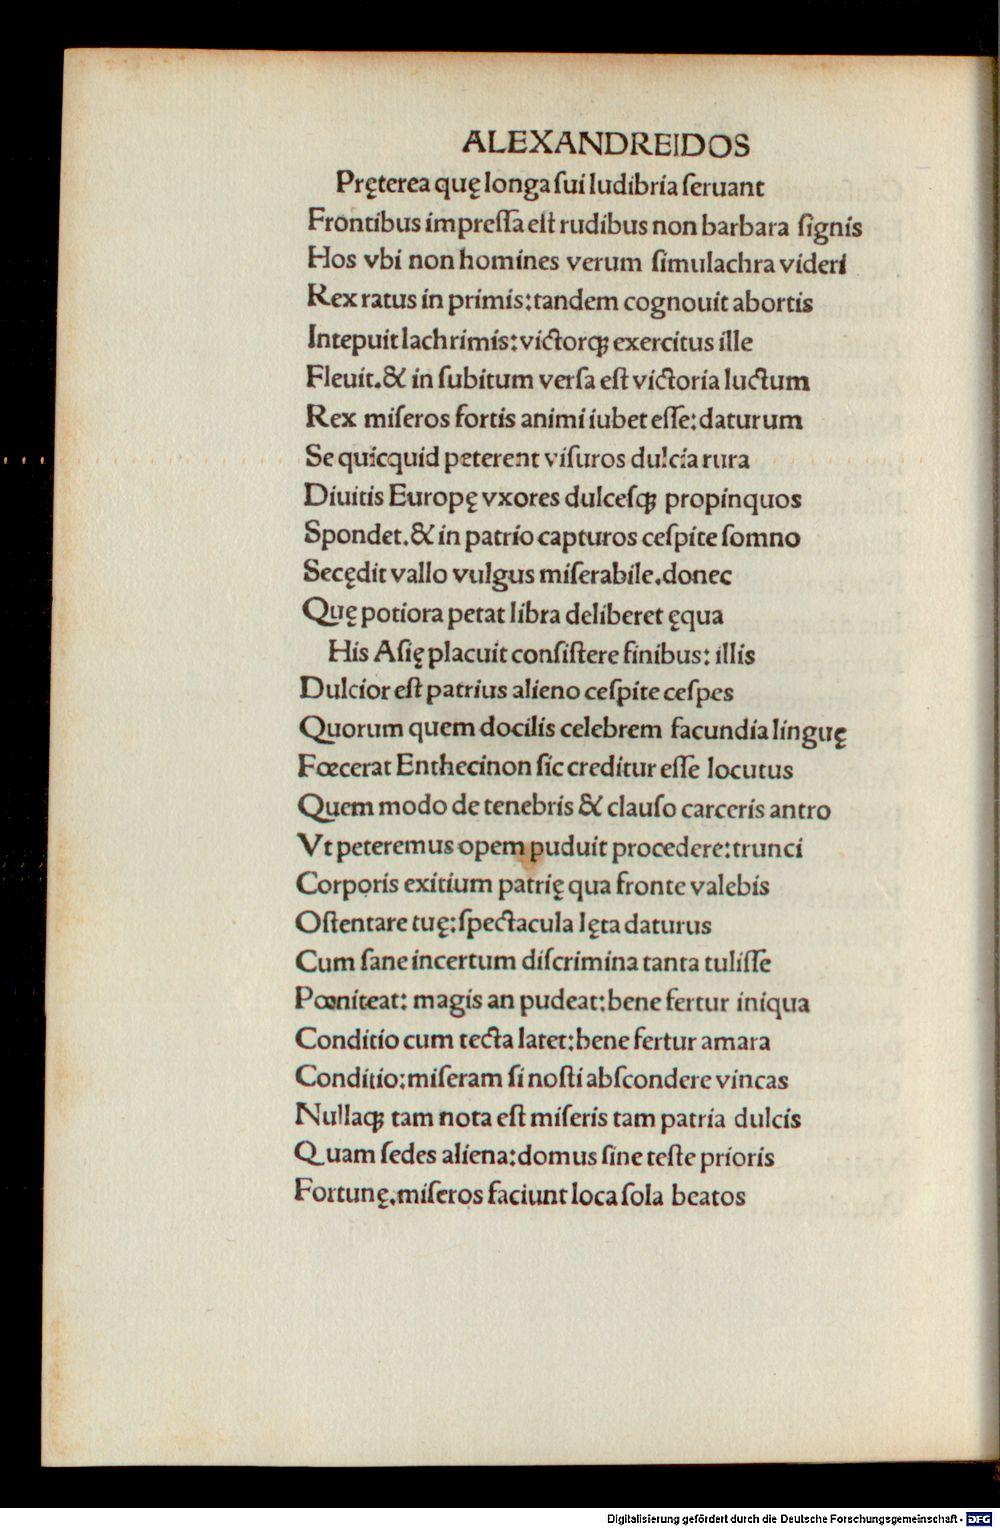 ALEXANDREIDOS
Pręterea quę longa ſui ludibria ſeruant
Frontibus impreſſa eſt rudibus non barbara ſignis
Hos vbi non homines verum ſimulachra videri
Rex ratus in primis: tandem cognouit abortis
Intepuit lachrimis: victorqꝫ exercitus ille
Fleuit. & in ſubitum verſa eſt victoria luctum
Rex miſeros fortis animi iubet eſſe: daturum
Se quicquid peterent viſuros dulcia rura
Diuitis Europę vxores dulceſqꝫ propinquos
Spondet. & in patrio capturos ceſpite ſomno
Secędit vallo vulgus miſerabile. donec
Quę potiora petat libra deliberet ęqua
His Aſię placuit conſiſtere finibus: illis
Dulcior eſt patrius alieno ceſpite ceſpes
Quorum quem docilis celebrem facundia linguę
Fœcerat Enthecinon ſic creditur eſſe locutus
Quem modo de tenebris & clauſo carceris antro
Vt peteremus opem puduit procedere: trunci
Corporis exitium patrię qua fronte valebis
Oſtentare tuę: ſpectacula lęta daturus
Cum ſane incertum diſcrimina tanta tuliſſe
Pœniteat: magis an pudeat: bene fertur iniqua
Conditio cum tecta latet: bene fertur amara
Conditio: miſeram ſi noſti abſcondere vincas
Nullaqꝫ tam nota eſt miſeris tam patria dulcis
Quam ſedes aliena: domus ſine teſte prioris
Fortunę. miſeros faciunt loca ſola beatos
Digitalisierung gefördert durch die Deutsche Forschungsgemeinschaft - DFG